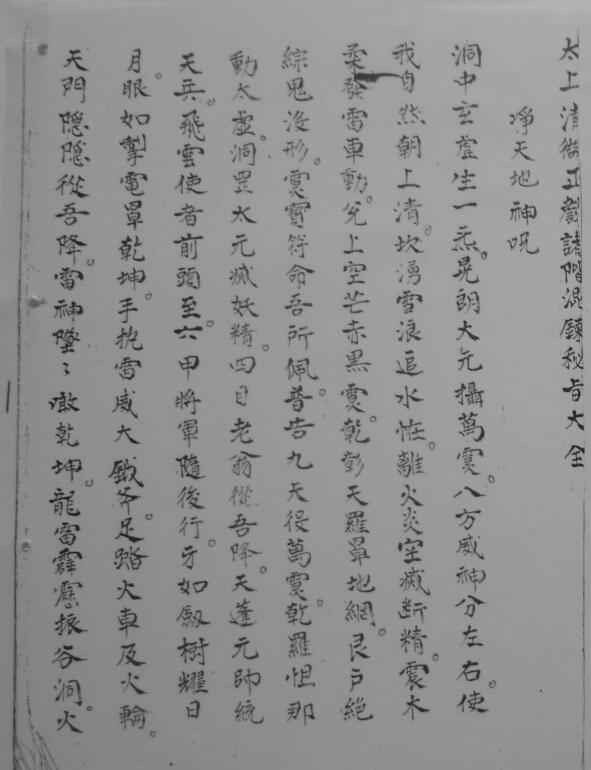 太上清微工𤼵諸階混鍊秘旨大全
凈天地神呪
洞中玄虛生一炁。晃朗大元攝萬䨩。八方威神分左右。使
我自然朝上清。坎湧雪浪追水怪。離火炎空滅断精。震木
柔發雷車動。兌上空芒赤黑䨩。乾彰天羅罩地網。艮戶絕
綜鬼没形。䨩寶符命吾所佩。普告九天役萬䨩。乾羅怛那
動太虛。洞罡太元滅妖精。四目老翁從吾降。天蓬元帥統
天兵。飛雲使者前頭至。六甲將軍隨後行。牙如劔樹耀日
月。眼如掣電罩乾坤。手把雷威大鉞斧。足踏火車及火輪。
天門隠隠從吾降。雷神墜〻噉乾坤。龍雷霹靂振谷洞。火